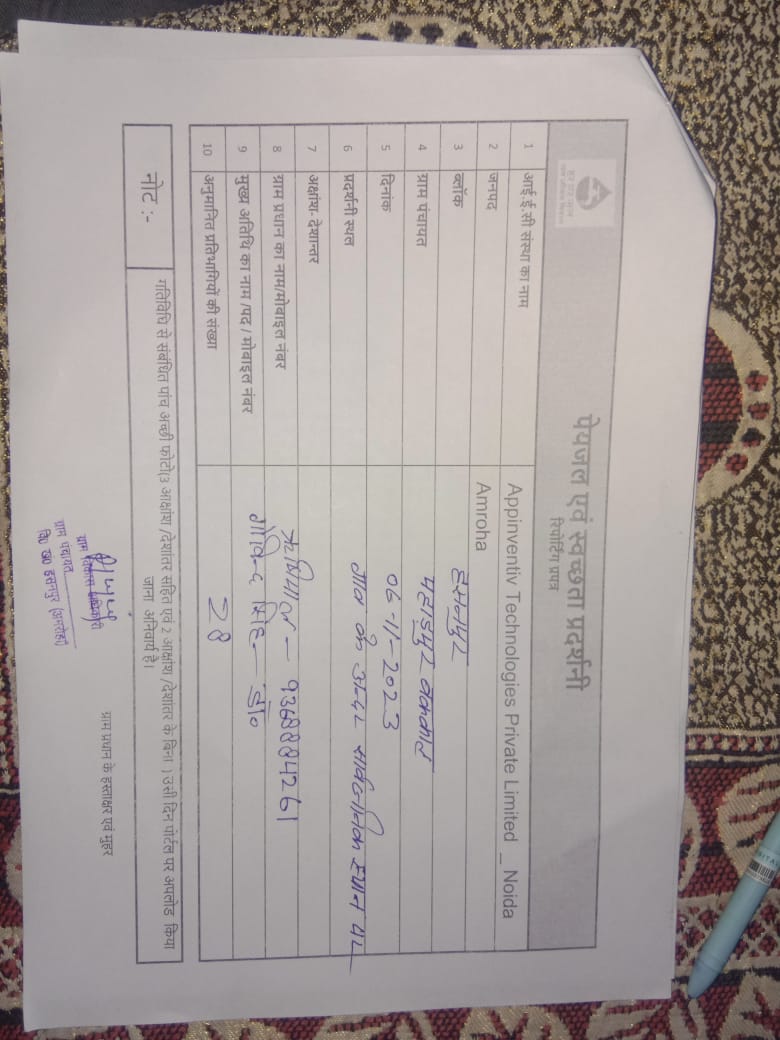 पेयजल एवं स्वच्छता प्रदर्शनी
रिपोर्टिंग प्रपत्र
1 आई.ई.सी संस्था का नाम Appinventiv Technologies Private Limited _ Noida
2 जनपद Amroha
3 ब्लॉक हसनपुर
4 ग्राम पंचायत
5 दिनांक 06-11-2023
6 प्रदर्शनी स्थल गाव के अन्दर सार्वजनिक स्थान पर
7 अक्षांश- देशान्तर
8 ग्राम प्रधान का नाम/मोबाइल नंबर
9 मुख्य अतिथि का नाम /पद / मोबाइल नंबर गोविन्द सिंह
10 अनुमानित प्रतिभागियों की संख्या 28
नोट :- गतिविधि से संबंधित पांच अच्छी फोटो(3 आक्षांश /देशांतर सहित एवं 2 आक्षांश /देशांतर के बिना ) उसी दिन पोर्टल पर अपलोड किया
जाना अनिवार्य है।
ग्राम विकास अधिकारी
ग्राम पंचायत
वि० ख० हसनपुर (अमरोहा)
ग्राम प्रधान के हस्ताक्षर एवं मुहर